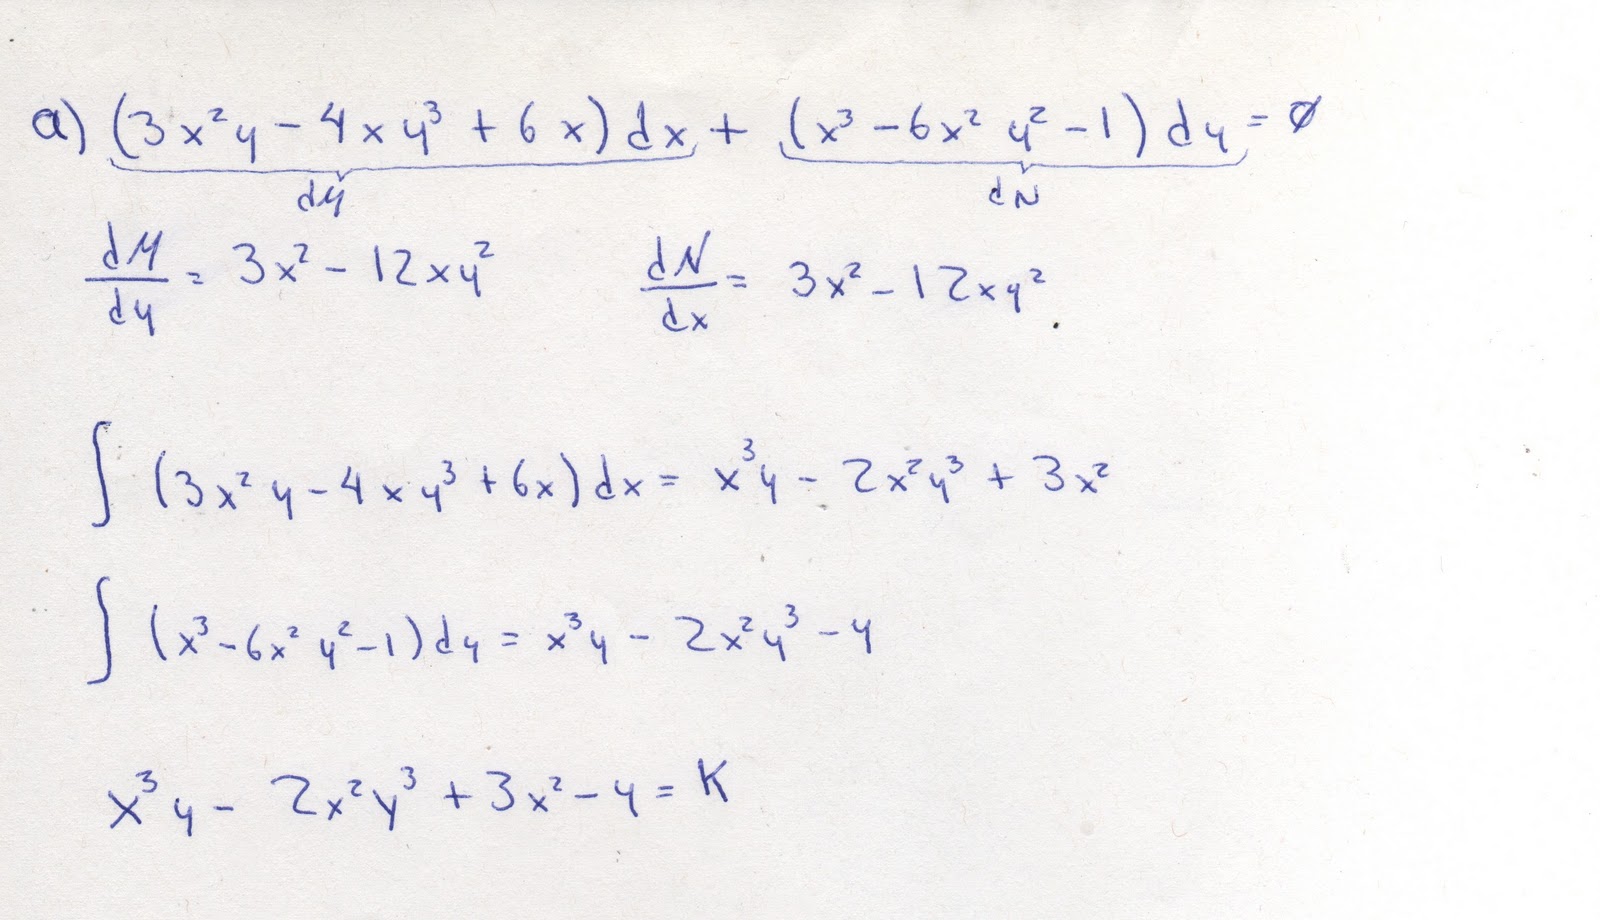 a) (3x²y - 4xy³ + 6x)dx + (x³ - 6x²y² - 1)dy = ∅
dM dN
dM/dy = 3x² - 12xy² dN/dx = 3x² - 12xy²
∫ (3x²y - 4xy³ + 6x)dx = x³y - 2x²y³ + 3x²
∫ (x³ - 6x²y² - 1)dy = x³y - 2x²y³ - y
x³y - 2x²y³ + 3x² - y = K